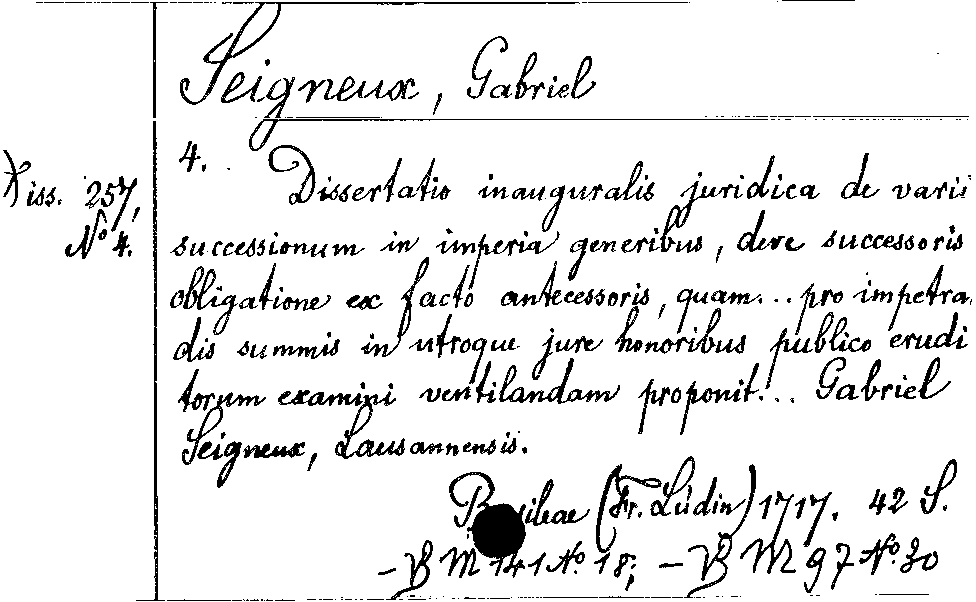 Seigneux, Gabriel
4.
Diss. 257,
No 4.
Dissertatio inauguralis juridica de varii
successionum in imperia generibus, deve successoris
obligatione ex facto antecessoris, quam... pro impetra
dis summis in utroque jure honoribus publico erudi
torum examini ventilandam proponit... Gabriel
Seigneux, Lausannensis.
(Fr. Lüdin) 1717. 42 S.
- VB M 141 No. 18; - VB M 97 No. 30